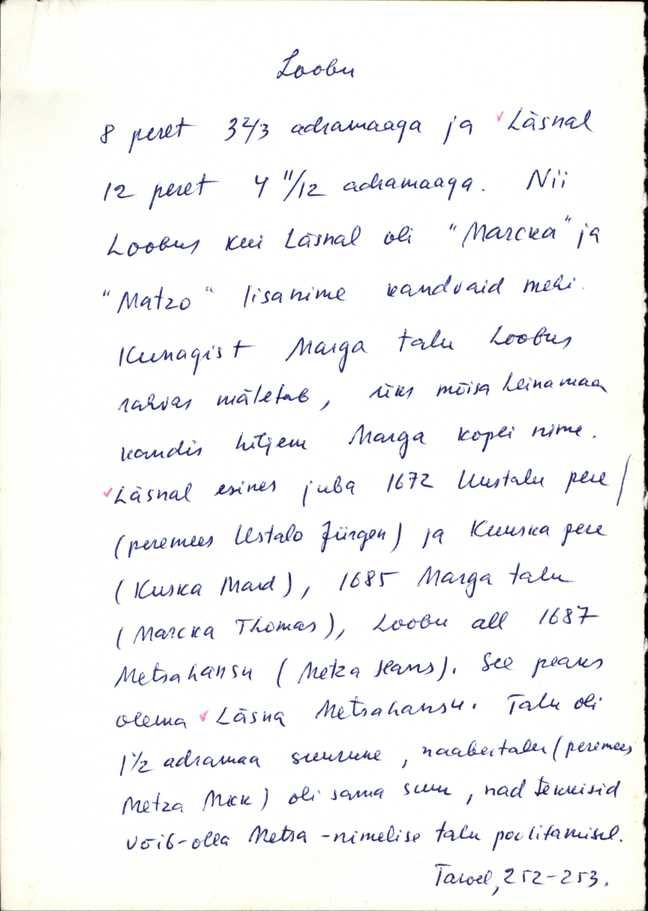 Loobu
8 peret 3 2/3 adramaaga ja Läsnal
12 peret 4 11/12 adramaaga. Nii
Loobus kui Läsnal oli "Marcka" ja
"Matzo" lisanime kandvaid mehi.
Kunagist Marga talu Loobus
rahvas mäletab, üks mõisa heinamaa
kandis hiljem Marga kopli nime.
Läsnal esines juba 1672 Uustalu pere
(peremees Ustalo Jürgen) ja Kuuska pere
(Kuska Mard), 1685 Marga talu
(Marcka Thomas), Loobu all 1687
Metsahansu (Metza Hans). See peaks
olema Läsna Metsahansu. Talu oli
1 1/2 adramaa suurune, naabertalu (peremees
Metza Mick) oli sama suur, nad tekkisid
võib-olla Metsa-nimelise talu poolitamisel.
Tarvel, 252-253.